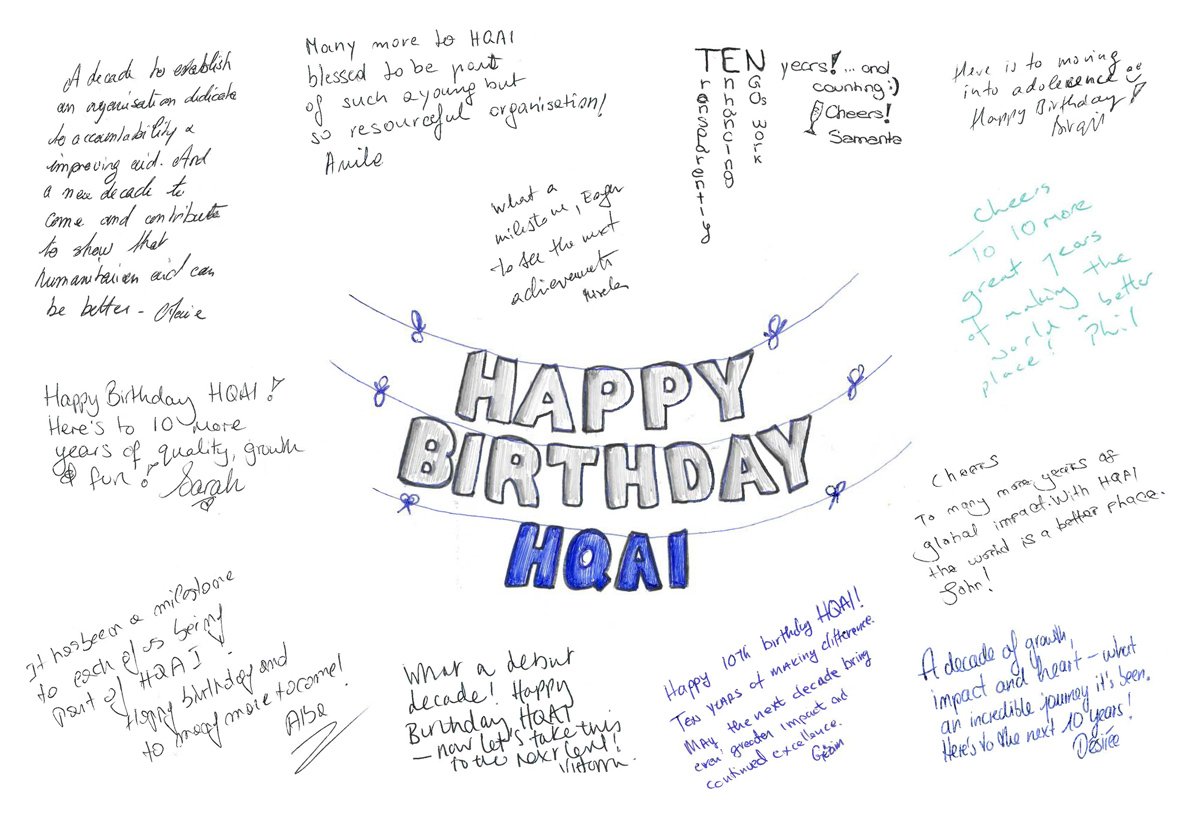 A decade to establish
an organisation dedicate
to accountability &
improving aid. And
a new decade to
come and contribute
to show that
humanitarian aid can
be better -
Many more to HQAI
blessed to be part
of such a young but
so resourceful organisation!
TEN years! ... and
counting :)
Cheers!
Samanta
Transparently
Enhancing
NGOs work
Here is to moving
into adolescence
Happy Birthday!
What a
milestone, Eager
to see the next
achievements
Cheers
To 10 more
great years
of making the
world a better
place! Phil
HAPPY
BIRTHDAY
HQAI
Happy Birthday HQAI!
Here's to 10 more
years of quality, growth
& fun! Sarah
Cheers
To many more years of
global impact. With HQAI
the world is a better place.
John!
It has been a milestone
to each of us being
part of HQAI!
Happy birthday and
to many more to come!
Alba
What a debut
decade! Happy
Birthday HQAI
- now let's take this
to the next level!
Happy 10th birthday HQAI!
Ten years of making difference.
May the next decade bring
even greater impact and
continued excellence.
A decade of growth,
impact and heart - what
an incredible journey it's been.
Here's to the next 10 years!
Désirée